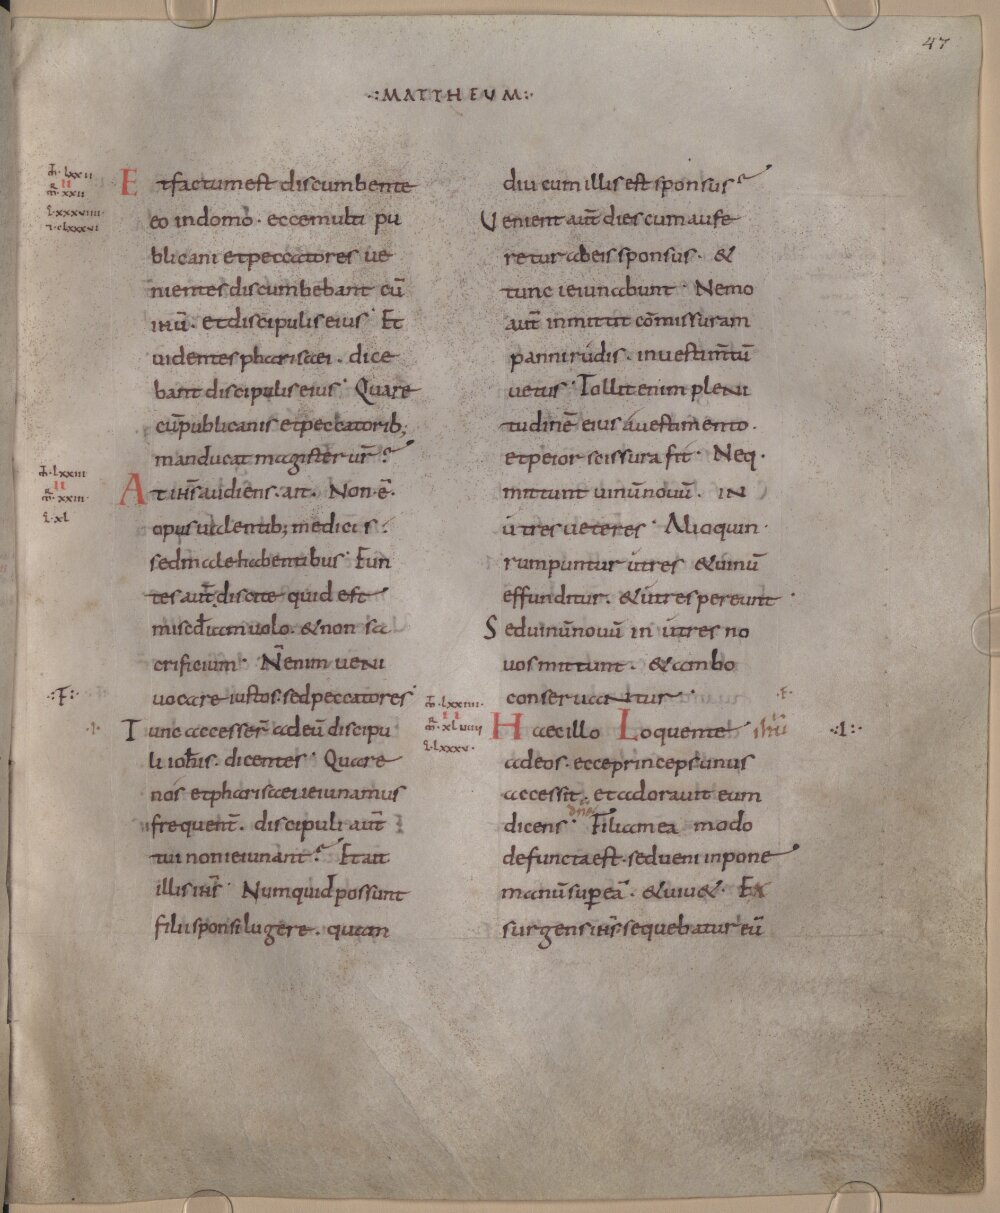 47
·:MATTHEUM:·
m̄·lxxii
II
m̄r·xxii
l·lxxxviiii·
i·clxxxvi
Et factum est discumbente
eo in domo · ecce multi pu
blicani et peccatores ue
nientes discumbebant cū
ihū · et discipuli eius · Et
uidentes pharisaei · dice
bant discipulis eius · Quare
cū publicanis et peccatorib;
manducat magister ur̄ ?
m̄·lxxiii
II
m̄r·xxiii·
l·xl
At ihs̄ audiens · ait · Non · ē ·
opus ualentib; medicis ·
sed male habentibus · Eun
tes aut̄ discite quid est
misc̄diam uolo · & non sa
crificium · N̄ enim ueni
·:F:·
uocare iustos · sed peccatores
·I·
Tunc accesser̄ ad eū discipu
li ioh̄is · dicentes · Quare
nos et pharisaei ieiunamus
frequent̄ · discipuli aut̄
tui non ieiunant ? Et ait
illis ihs̄ · Numquid possunt
filii sponsi lugere · quam
diu cum illis est sponsus ?
Uenient aut̄ dies cum aufe
retur ab eis sponsus · &
tunc ieiunabunt · Nemo
aut̄ inmittit cōmissuram
panni rudis · in uestim̄tū
uetus · Tollit enim pleni
tudinē eius a uestimento ·
et peior scissura fit · Neq ·
mittunt uinū nouū · in
utres ueteres · Alioquin ·
rumpuntur utres & uinū
effunditur · & utres pereunt ·
Sed uinū nouū in utres no
uos mittunt · & ambo
conseruantur ·
·F·
m̄·lxxiiii·
II
m̄r·xluiiii
l·lxxxv·
Haec illo Loquente ihū
·:I:·
ad eos · ecce princeps unus
accessit · et adorauit eum
dn̄e
dicens · Filia mea modo
defuncta est · sed ueni inpone
manū sup eā · & uiu& · Ex
surgens ihs̄ sequebatur eū